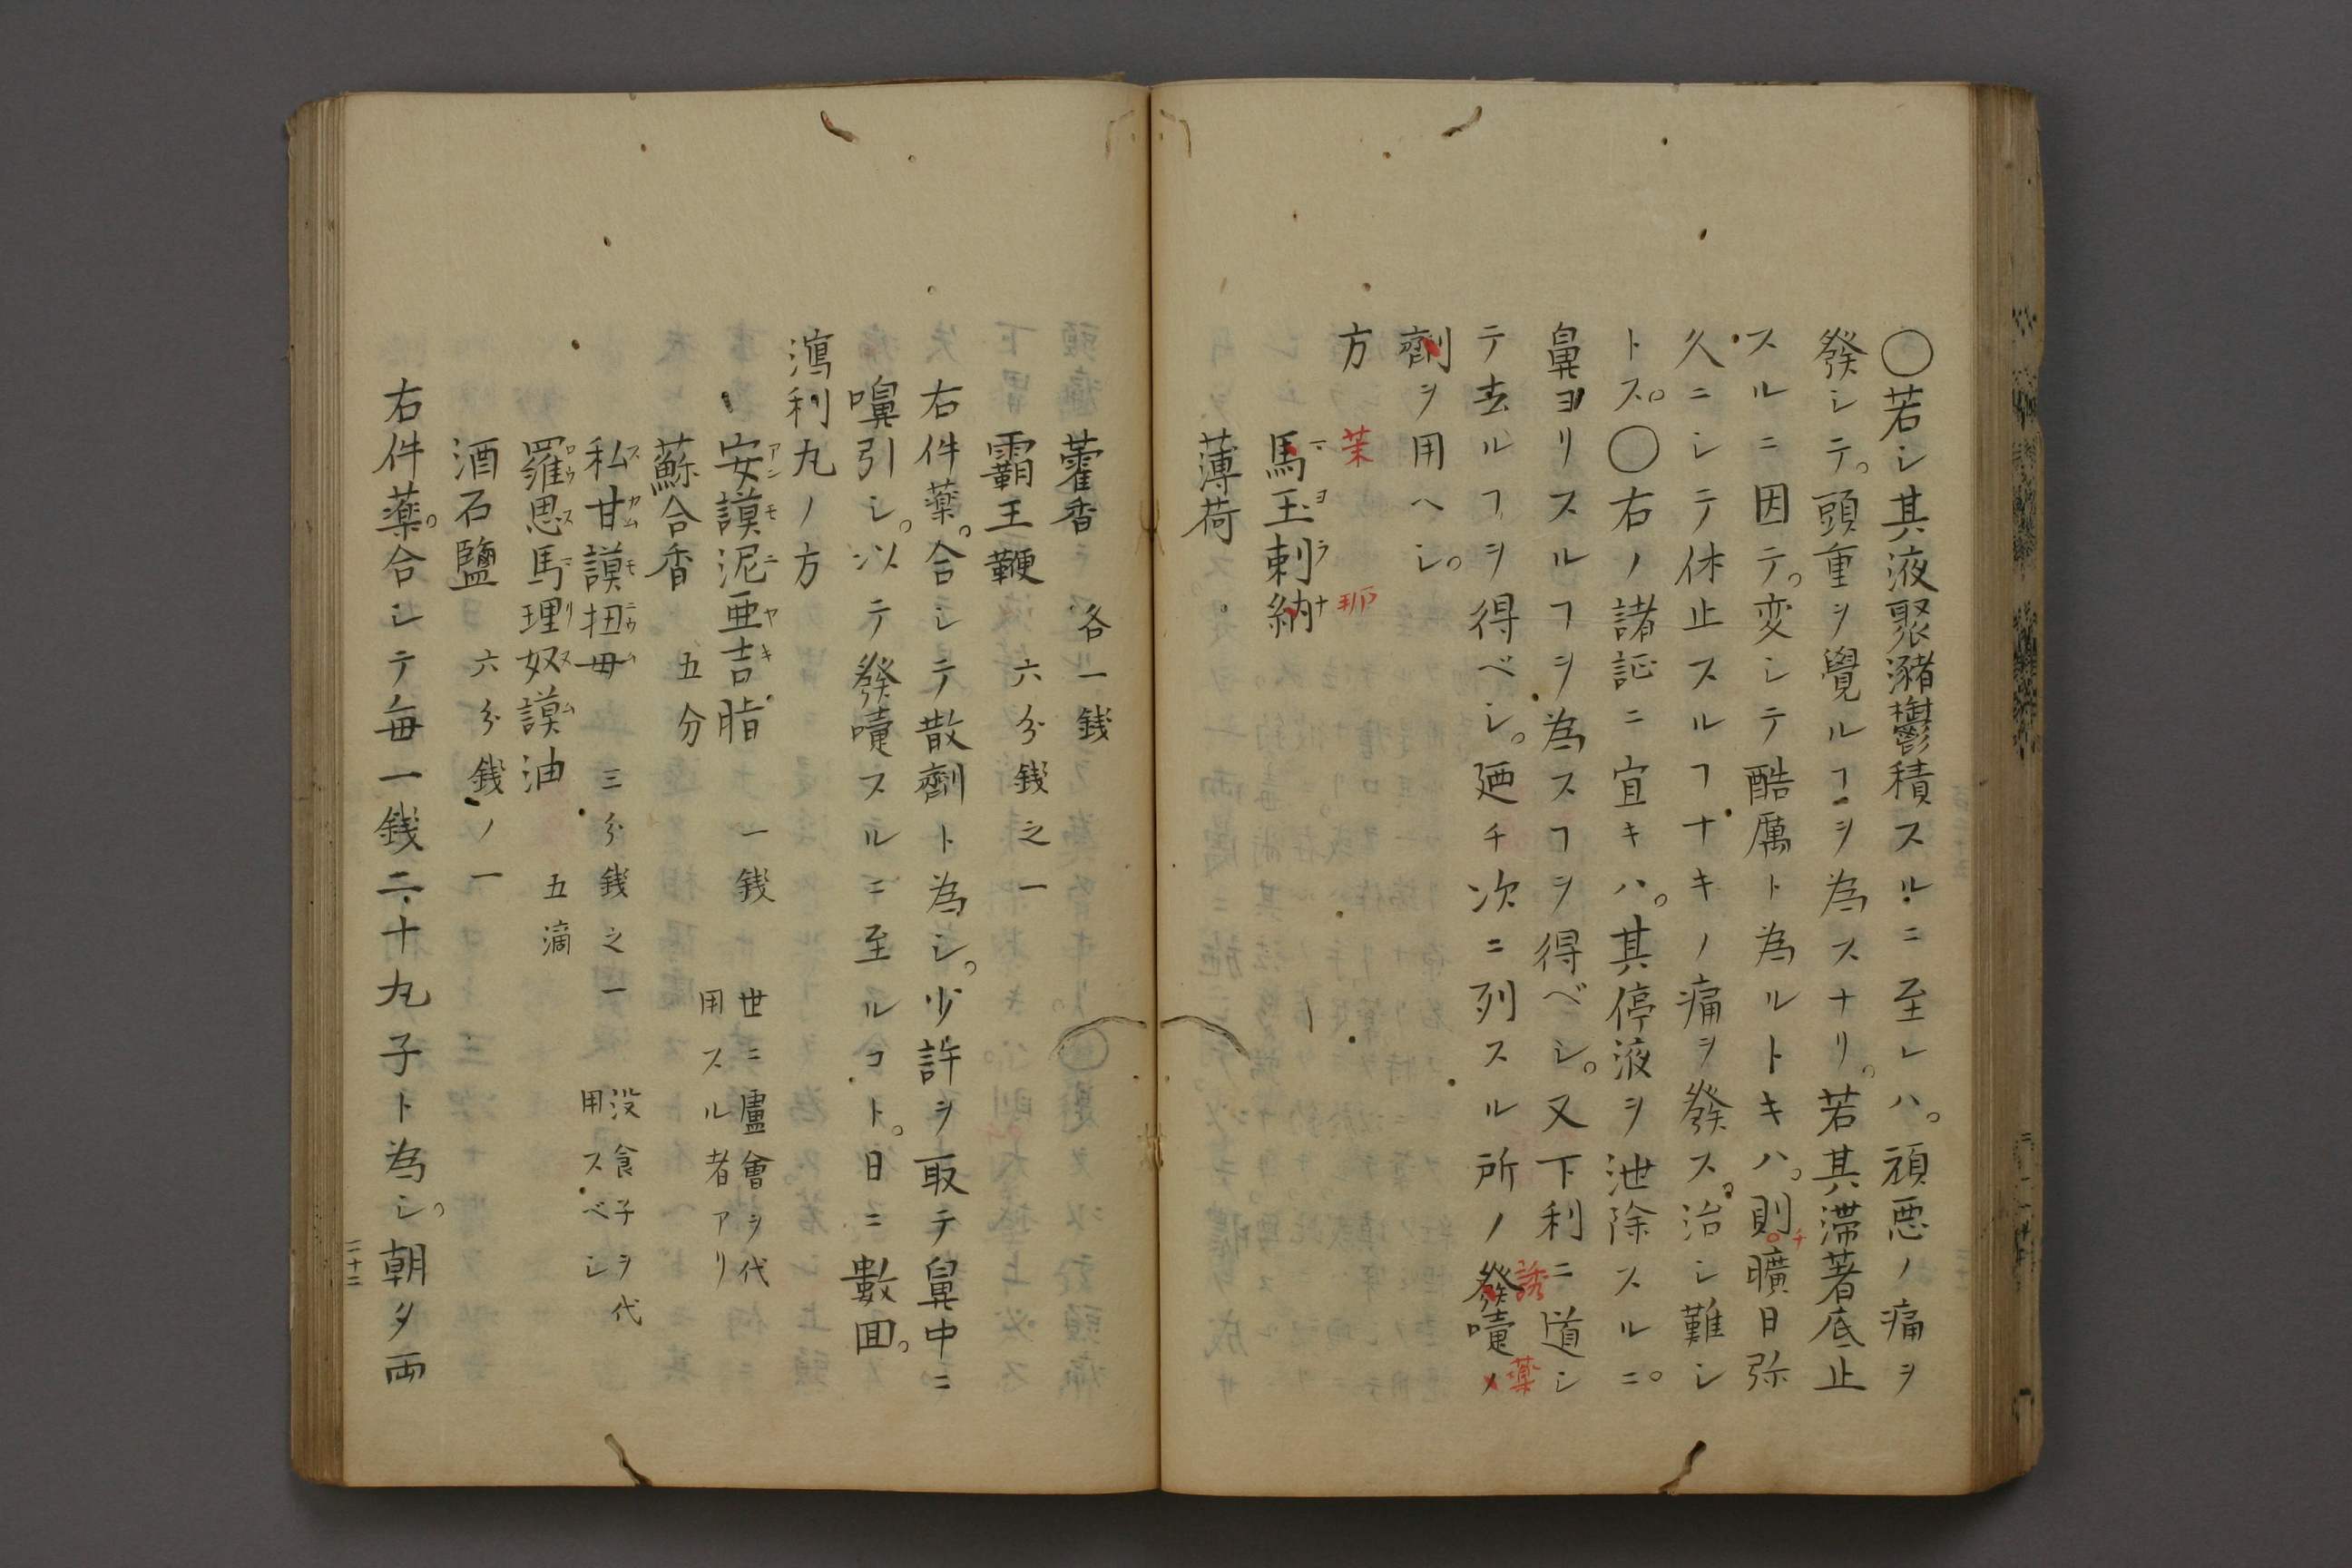 〇若シ其液聚瀦鬱積スルニ至レハ。頑悪ノ痛ヲ
發シテ。頭重ヲ覺ルヿヲ為スナリ。若其滞著底止
スルニ因テ。変シテ酷厲ト為ルトキハ。則チ曠日弥
久ニシテ休止スルヿナキノ痛ヲ發ス。治シ難シ
トス。〇右ノ諸証ニ宜キハ。其停液ヲ泄除スルニ。
鼻ヨリスルヿヲ為スヿヲ得ベシ。又下利ニ道シ
テ去ルヿヲ得ベシ。廼チ次ニ列スル所ノ發嚔ノ
誘
藥
劑ヲ用ヘシ。
方
茉 那
馬玉剌納
マヨラナ
薄荷。
藿香 各一銭
霸王鞭 六分銭之一
右件藥。合シテ散劑ト為シ。少許ヲ取テ鼻中ニ
嗅引シ。以テ發嚔スルニ至ルコト。日ニ數回。
瀉利丸ノ方
安謨泥亜吉脂 一銭 世ニ盧會ヲ代
用スル者アリ
アンモニヤキ
蘇合香 五分
私甘謨扭毋 三分銭之一 没食子ヲ代
用スベシ
スカムモニウム
羅思馬理奴謨油 五滴
ロウスマリヌム
酒石鹽 六分銭ノ一
右件藥。合シテ毎一銭二十丸子ト為シ。朝夕両
二十二